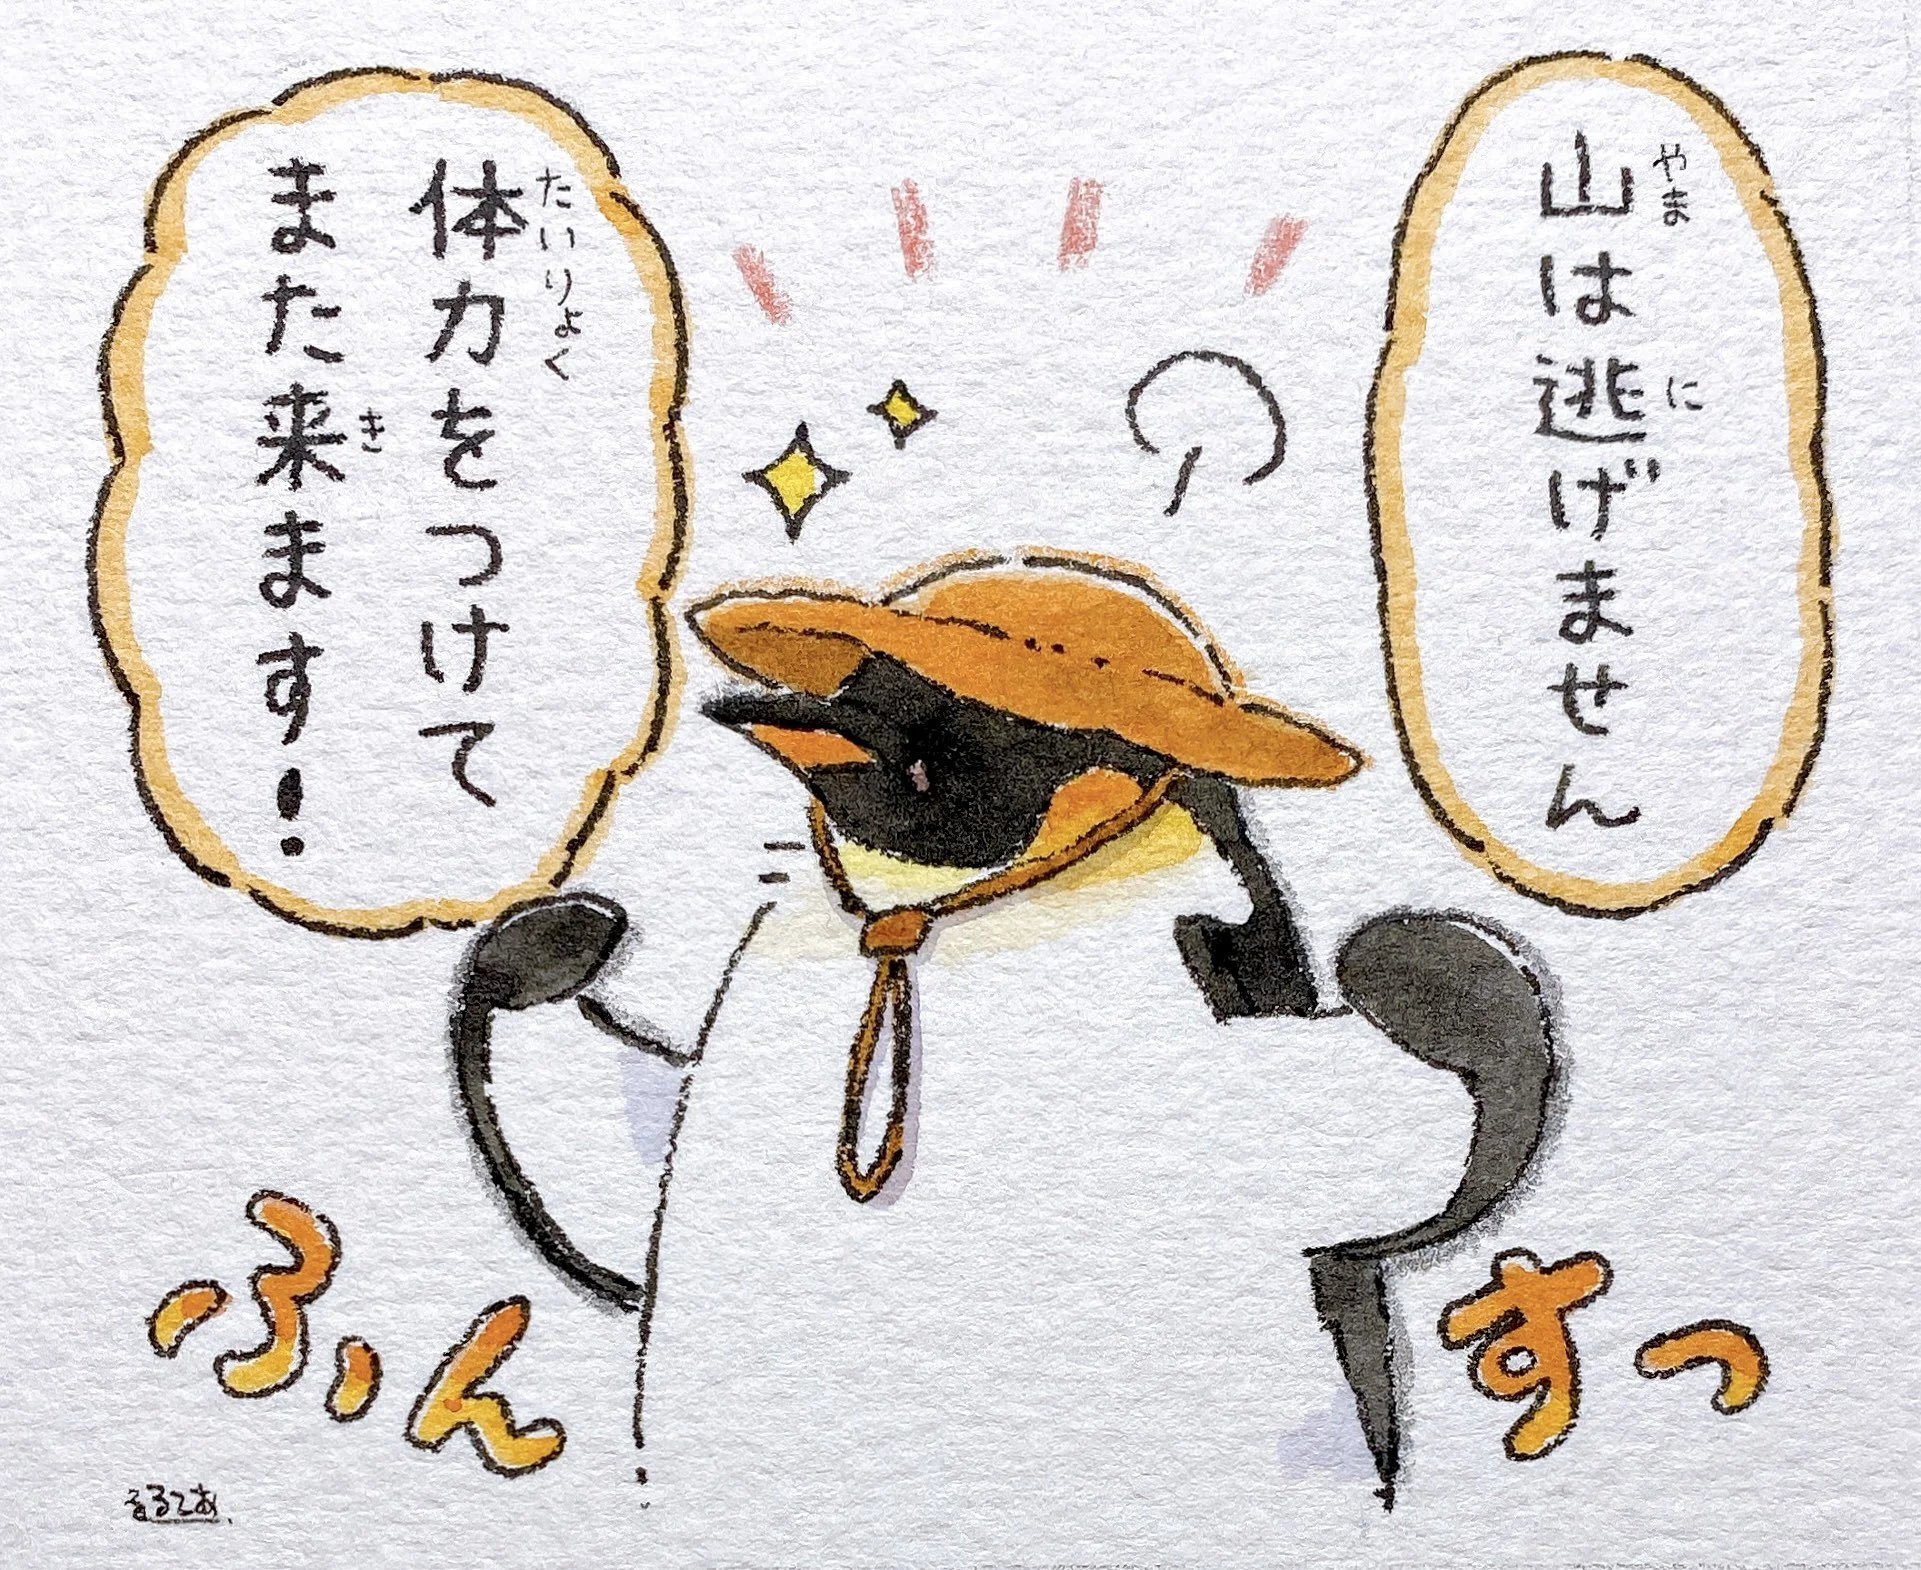 山は逃げません
やま
に
体力をつけて
たいりょく
また来ます！
き
すっ
ふんっ